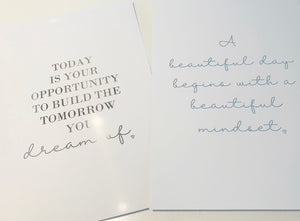 TODAY
IS YOUR
OPPORTUNITY
TO BUILD THE
TOMORROW
YOU
dream of.
A
beautiful day
begins with a
beautiful
mindset.